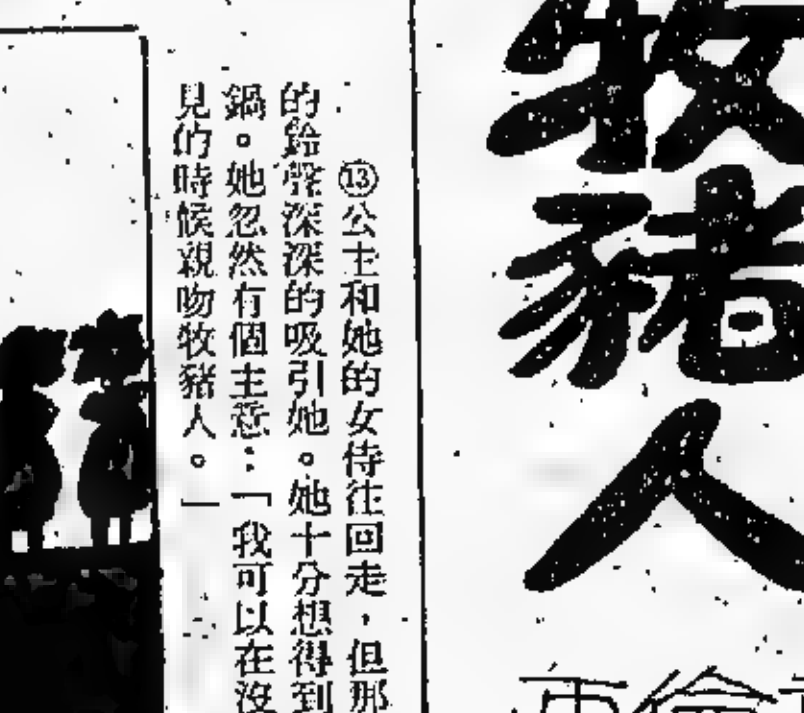 牧豬人
⑬公主和她的女侍往回走，但那
的鈴聲深深的吸引她。她十分想得到
鍋。她忽然有個主意：「我可以在沒
見的時候親吻牧豬人。」